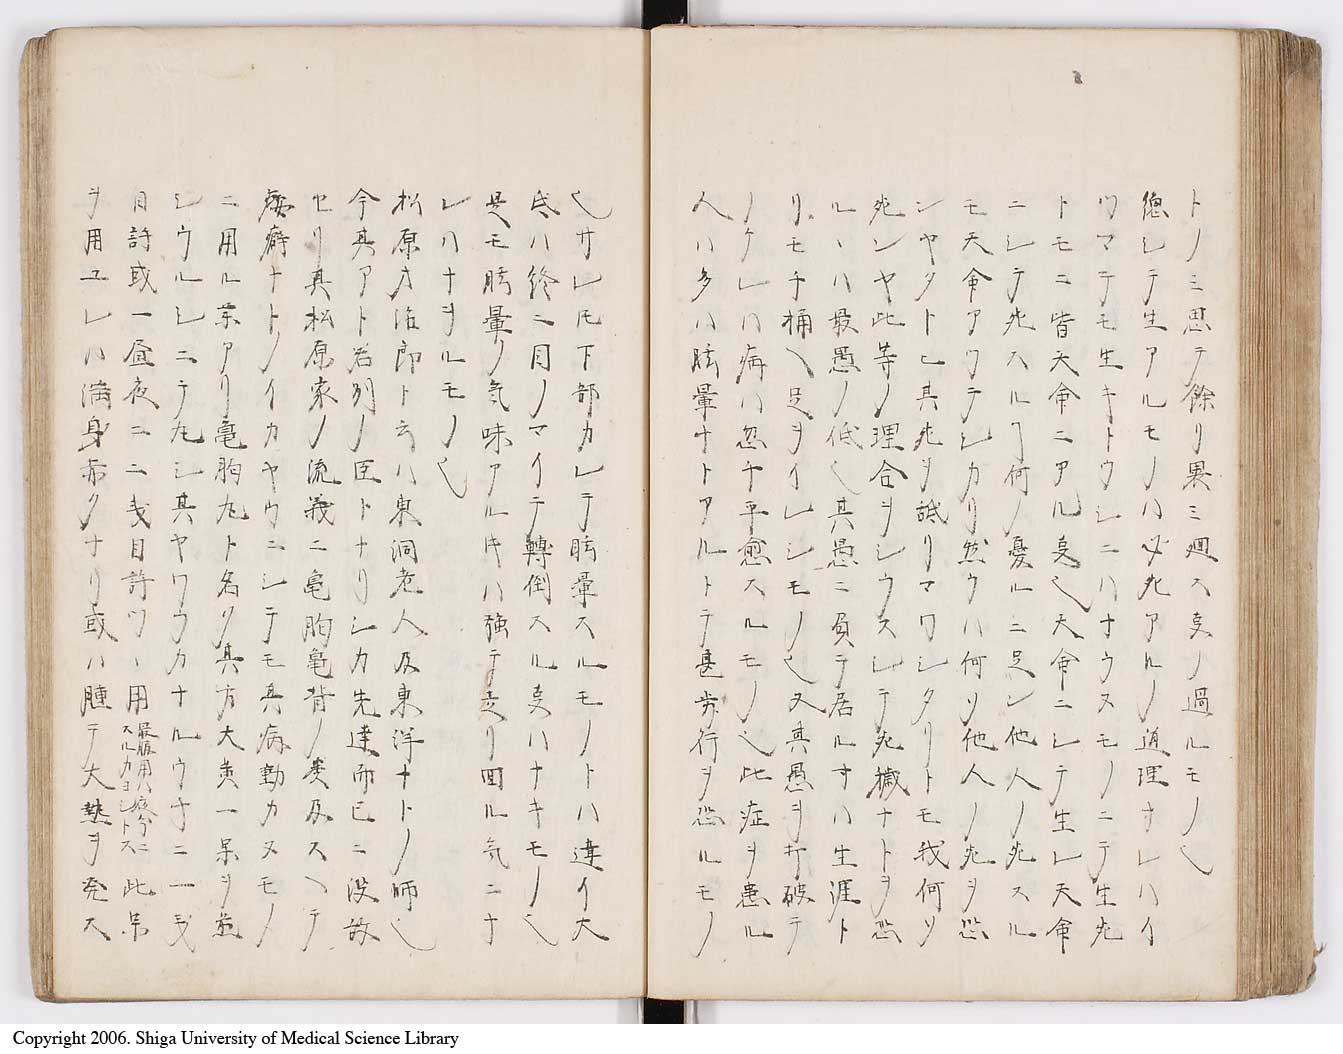 トノミ思テ餘リ畏ミ廻ス叓ノ過ルモノ也
惣シテ生アルモノハ必死アルノ道理ナレハイ
ツマテモ生キトウシニハナウスモノニテ生死
トモニ皆天命ニアル叓也天命ニシテ生レ天命
ニシテ死スルヿ何ノ憂ルニ足ン他人ノ死スル
モ天命アワテシカリ然ウハ何ソ他人ノ死ヲ恐
ンヤタトヒ其死ヲ誠リマワシタリトモ我何ソ
死ンヤ此等ノ理合ヲシウスシテ死穢ナトヲ恐
ルヽハ最愚ノ低也其愚ニ負テ居ル寸ハ生涯ト
リモチ桶ヘ足ヲイレシモノ也又其愚ヲ打破テ
ノケレハ病ハ忽チ平愈スルモノ也此症ヲ患ル
人ハ多ハ眩暈ナトアルトテ甚歩行ヲ恐ルモノ
也サレ𪜈下部カレテ眩暈スルモノトハ違イ大
底ハ終ニ目ノマイテ轉倒スル叓ハナキモノ也
是モ眩暈ノ気味アルキハ強テ走リ回ル気ニナ
レハナヲルモノ也
松原才治郎ト云ハ東洞老人及東洋ナトノ師也
今其アト君列ノ臣トナリシカ先達而已ニ没故
セリ真松原家ノ流義ニ亀胸亀背ノ類及スヘテ
痿癖ナトノイカヤウニシテモ其病動カヌモノ
ニ用ル薬アリ亀胸丸ト名ク其方大黄一味ヲ煎
シウルシニテ丸シ其ヤワラカナルウチニ一匁
目許或一昼夜ニ二匁目許ツヽ用 此薬
ヲ用ユレハ満身赤クナリ或ハ腫テ大熱ヲ発ス
Copyright 2006. Shiga University of Medical Science Library